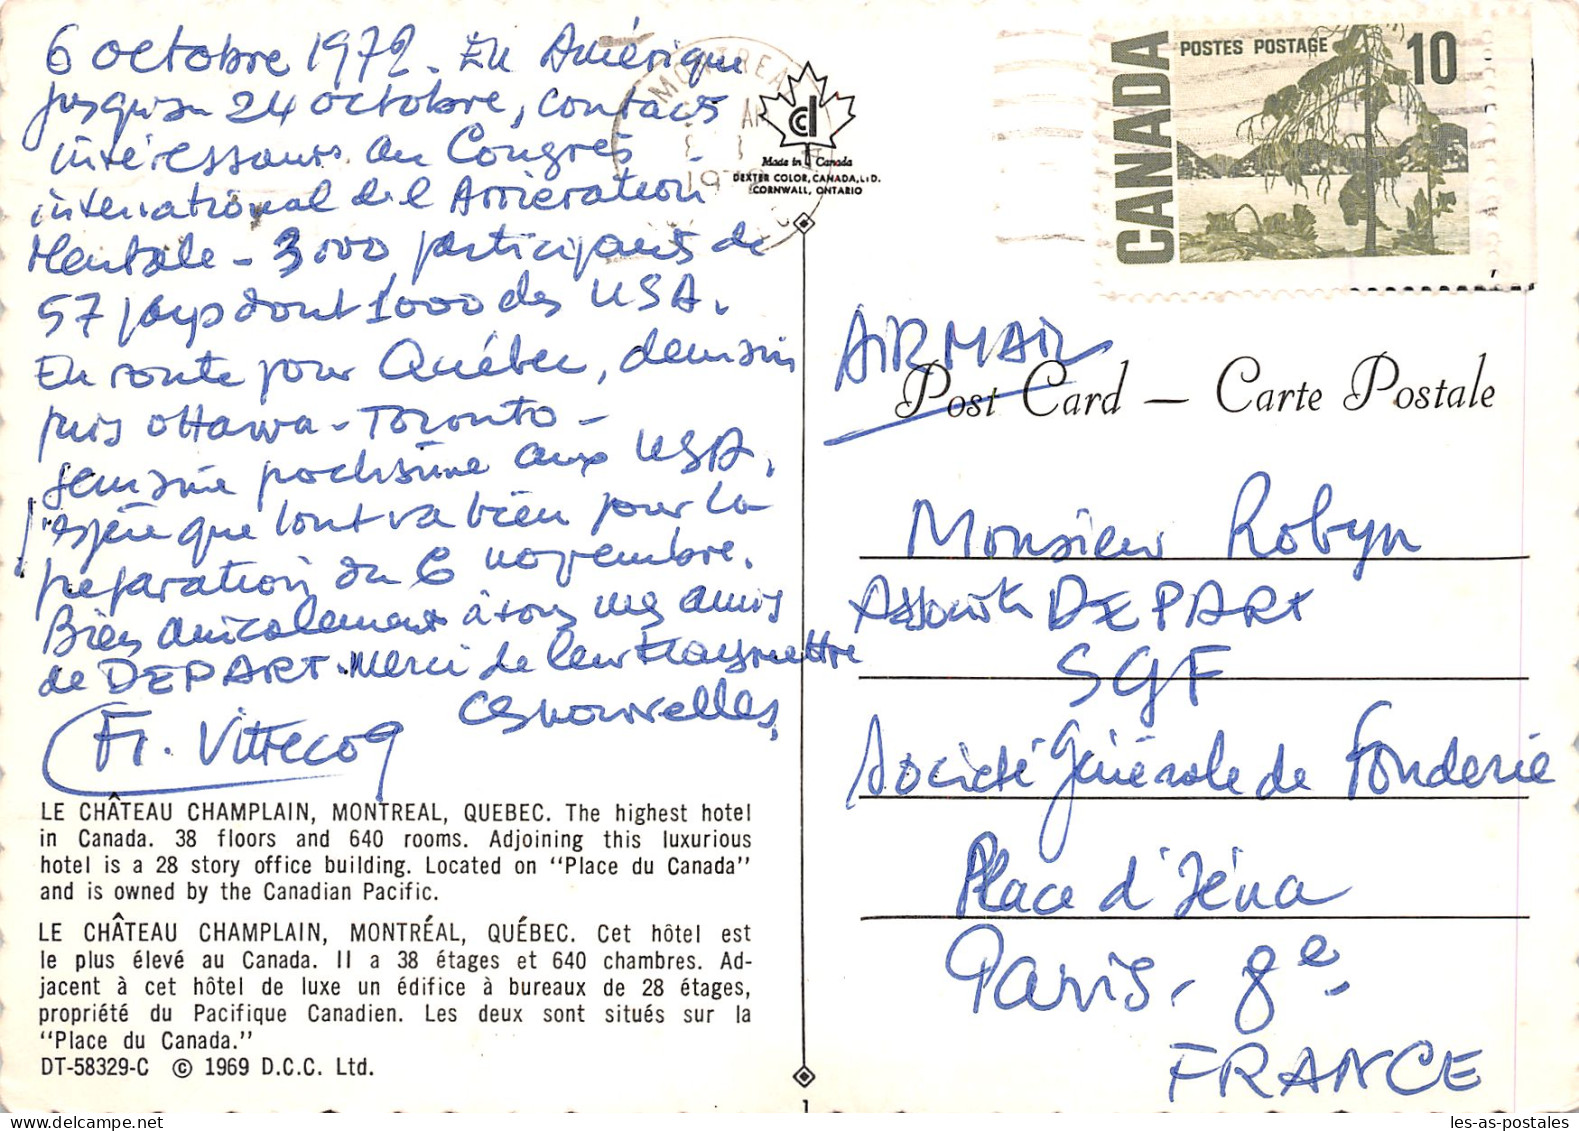 6 octobre 1972. En Amérique
jusqu'au 24 octobre, contacts
intéressants au Congrès
international de l'Arriération
Mentale - 3000 participants de
57 pays dont 1000 des USA.
En route pour Québec, demain
puis Ottawa - Toronto -
semaine prochaine aux USA.
J'espère que tout va bien pour la
préparation du 6 novembre.
Bien amicalement à tous mes amis
de DEPART. Merci de leur transmettre
ces nouvelles,
Fr. Vittecoq
LE CHÂTEAU CHAMPLAIN, MONTREAL, QUEBEC. The highest hotel
in Canada. 38 floors and 640 rooms. Adjoining this luxurious
hotel is a 28 story office building. Located on "Place du Canada"
and is owned by the Canadian Pacific.
LE CHÂTEAU CHAMPLAIN, MONTRÉAL, QUÉBEC. Cet hôtel est
le plus élevé au Canada. Il a 38 étages et 640 chambres. Ad-
jacent à cet hôtel de luxe un édifice à bureaux de 28 étages,
propriété du Pacifique Canadien. Les deux sont situés sur la
"Place du Canada."
DT-58329-C © 1969 D.C.C. Ltd.
MONTREAL
Made in Canada
DEXTER COLOR, CANADA, LTD.
CORNWALL, ONTARIO
1
CANADA
POSTES POSTAGE 10
AIRMAIL
Post Card — Carte Postale
Monsieur Robyn
DEPART
SGF
Société Générale de Fonderie
Place d'Iéna
Paris - 8e
FRANCE
les-as-postales